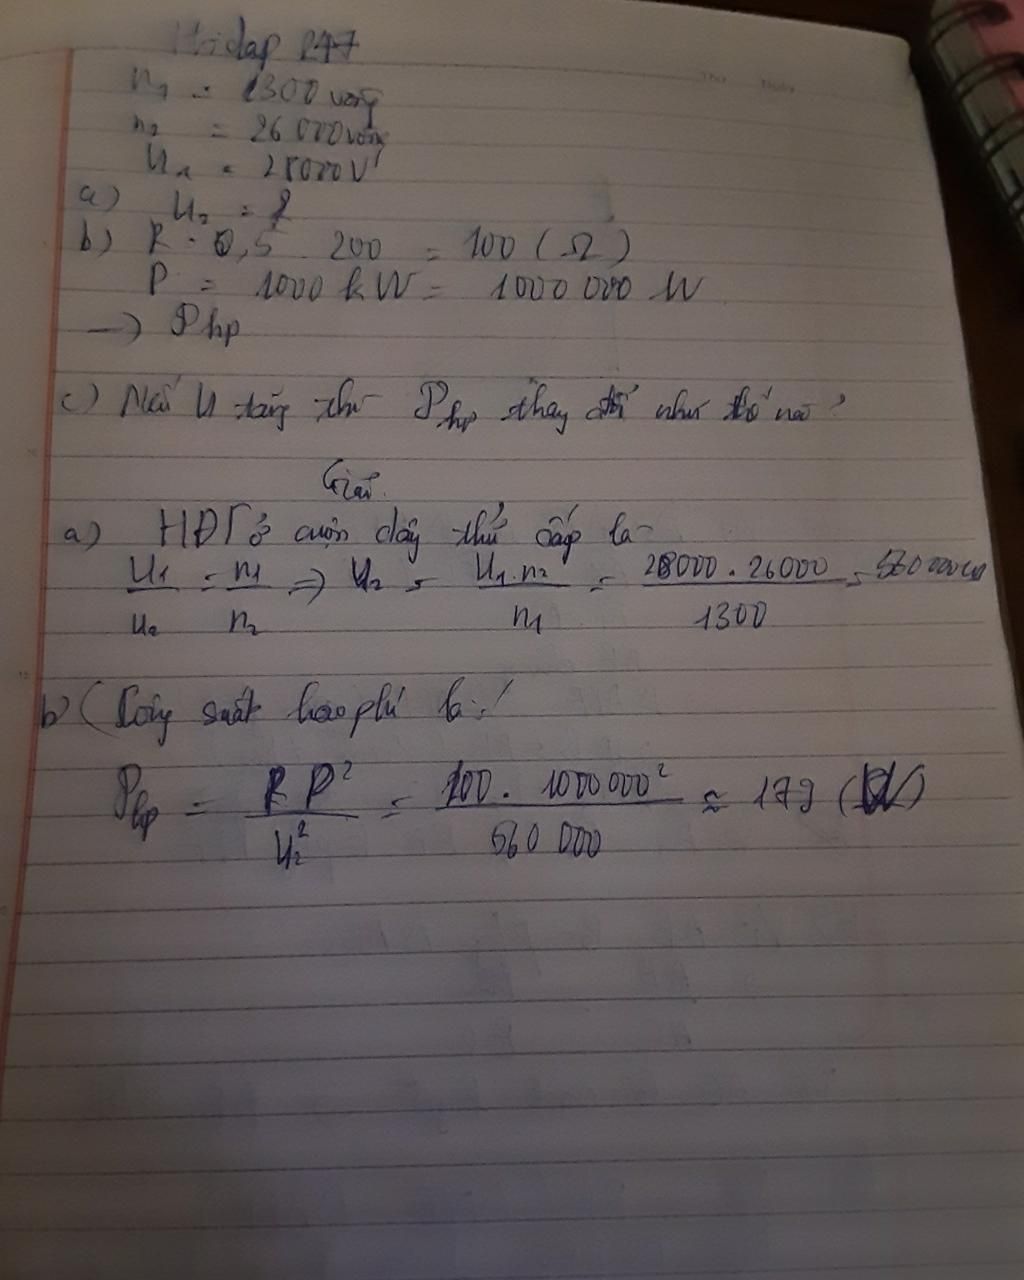 Hỏi đáp 247
n1 = 1300 vòng
n2 = 26 000 vòng
U1 = 28000 V
a) U2 = ?
b) R = 0,5 . 200 = 100 (Ω)
P = 1000 kW = 1000 000 W
→ Php
c) Nếu U tăng thì Php thay đổi như thế nào?
Giải.
a) HĐT ở cuộn dây thứ cấp là
U1/U2 = n1/n2 ⇒ U2 = U1.n2/n1 = 28000.26000/1300 = 560 000 (V)
b) Công suất hao phí là:
Php = R P²/U2² = 100. 1000 000²/560 000 ≈ 179 (W)